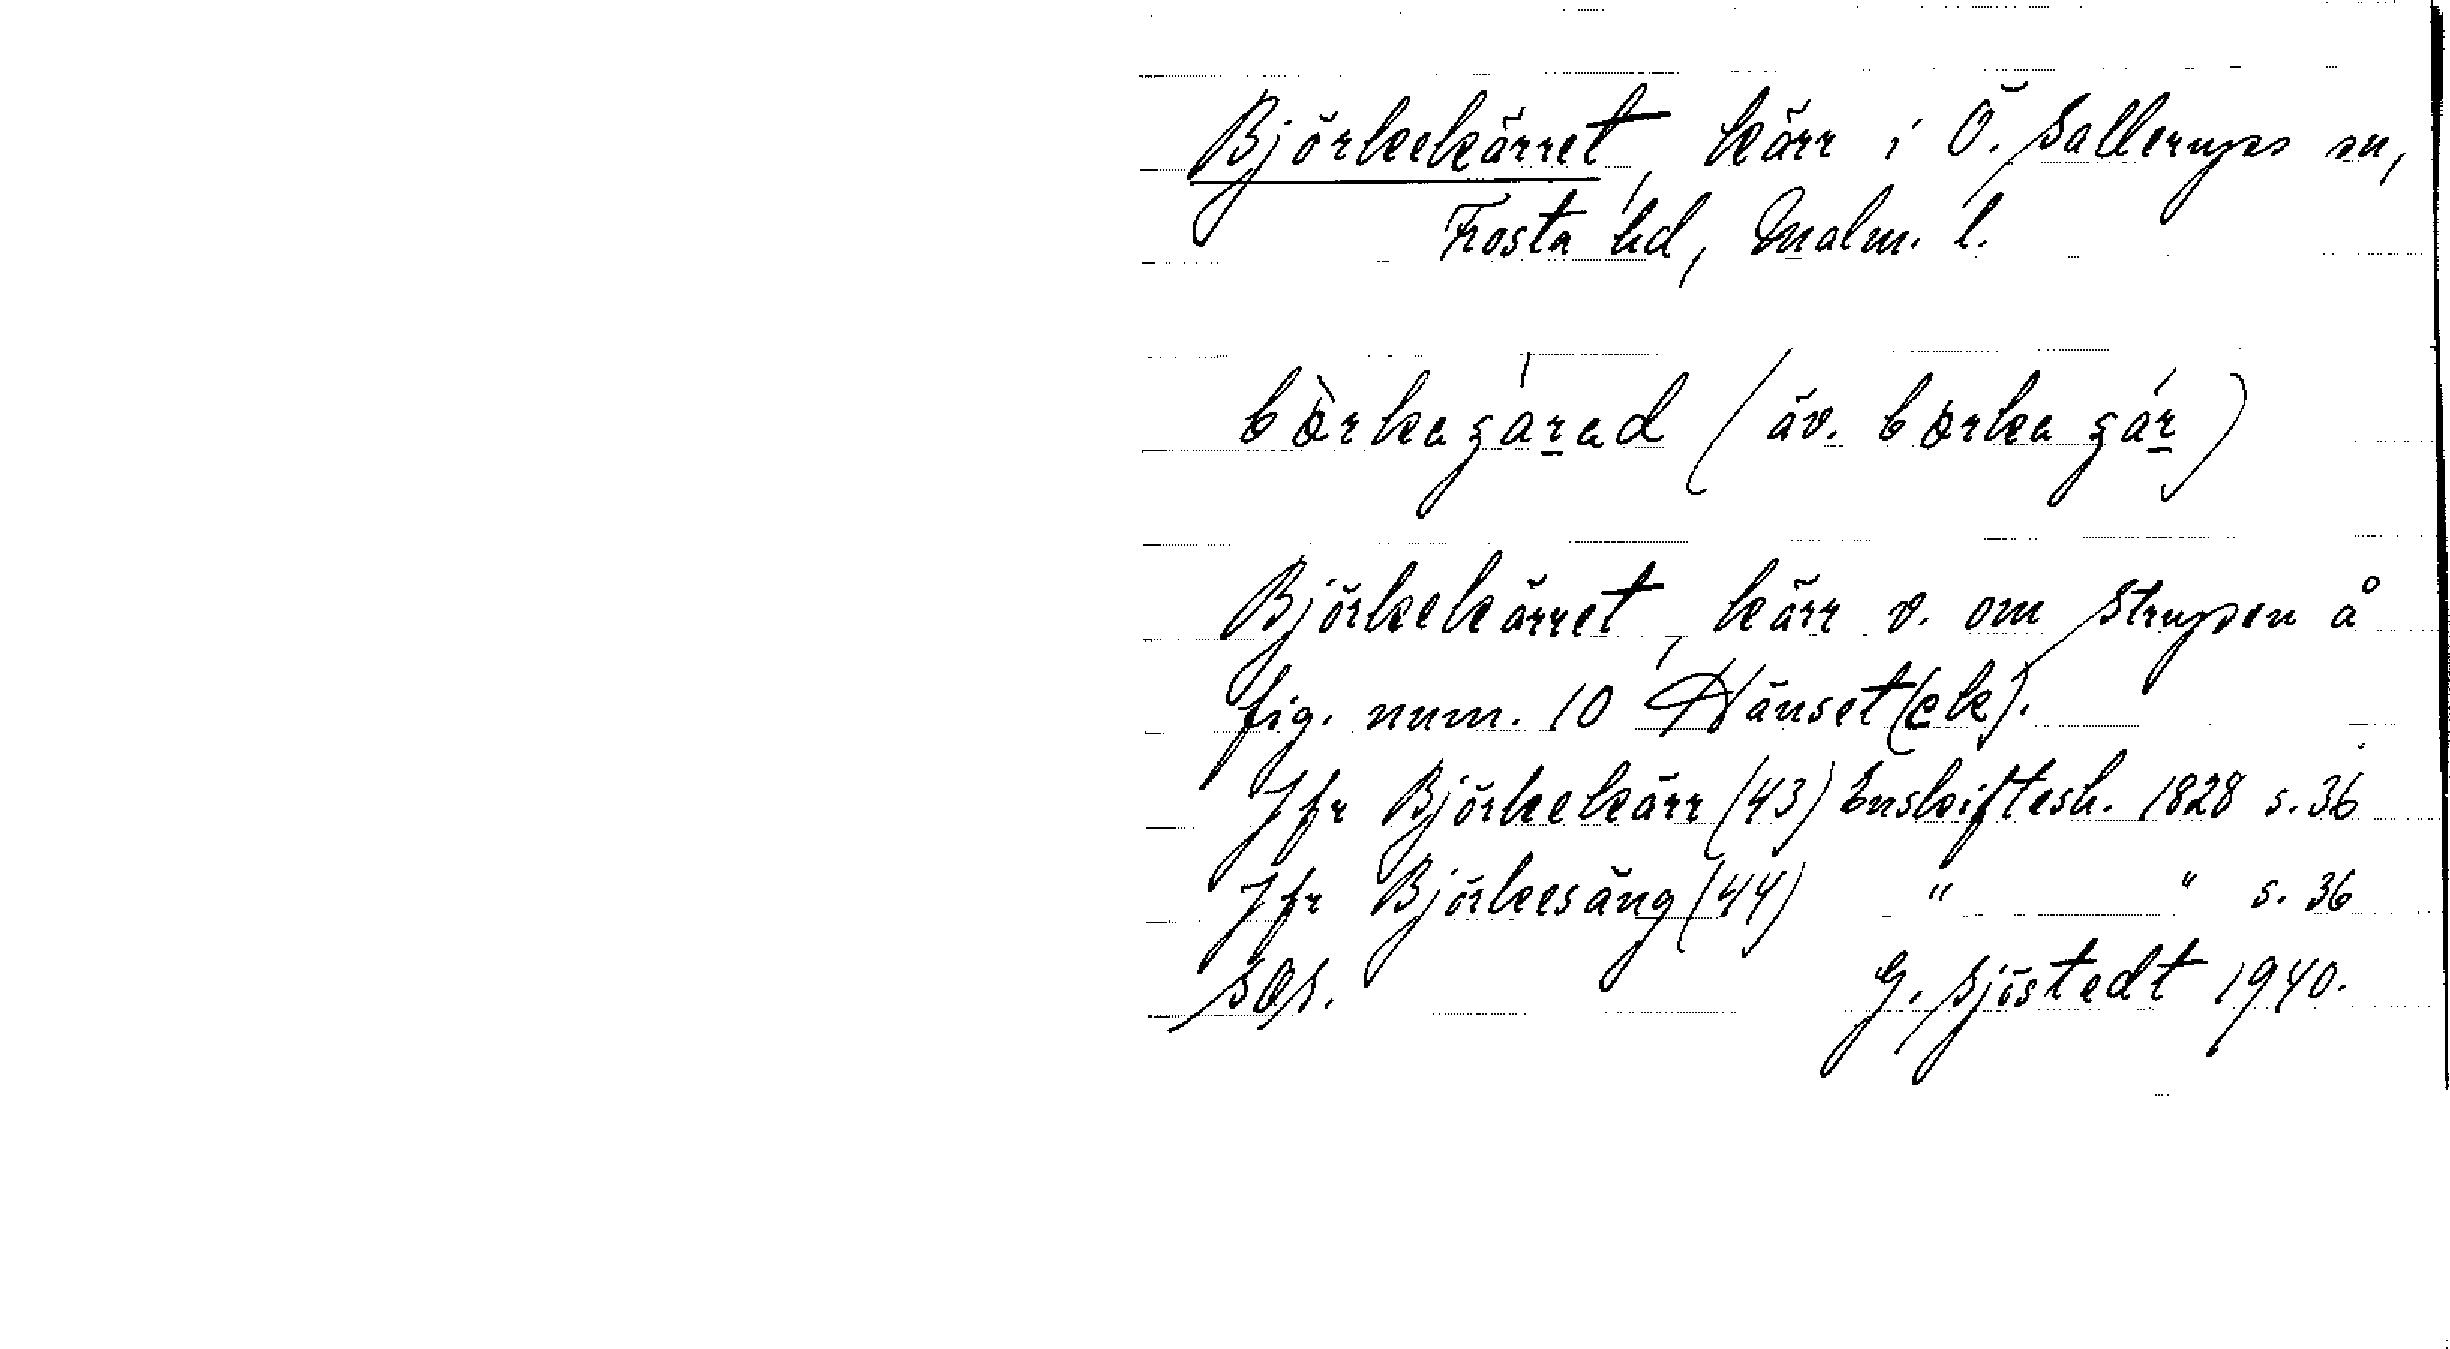 Björkekärret, kärr i Ö. Sallerups sn,
Frosta hd, Malm. l.
bòrkagárad (äv. bòrka gár)
Björkekärret, kärr v. om Strupen å
fig. num. 10 Hänset(ek).
Jfr Björkekärr (43) Enskiftesh. 1828 s. 36
Jfr Björkesäng (44) " " s. 36
SOA. G. Sjöstedt 1940.